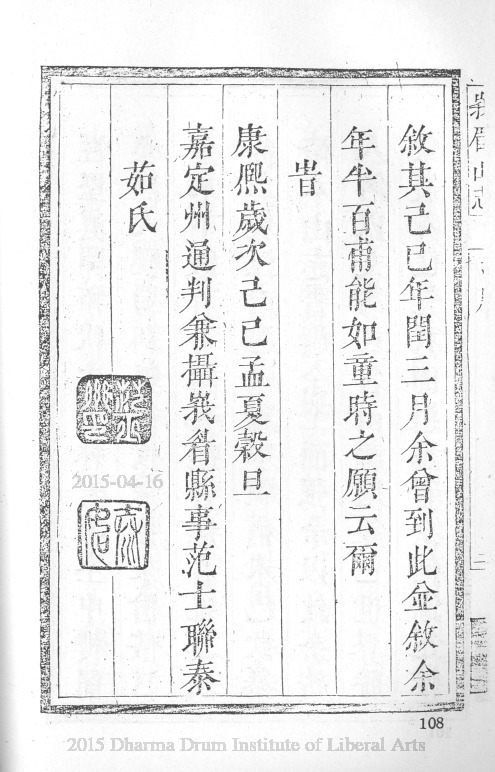 敘其己巳年閏三月余曾到此並敘余
年半百甫能如童時之願云爾
旹
康熈歲次己巳孟夏穀旦
嘉定州通判兼攝峩眉縣事范士聯泰
茹氏
2015-04-16
峩眉山志
108
2015 Dharma Drum Institute of Liberal Arts